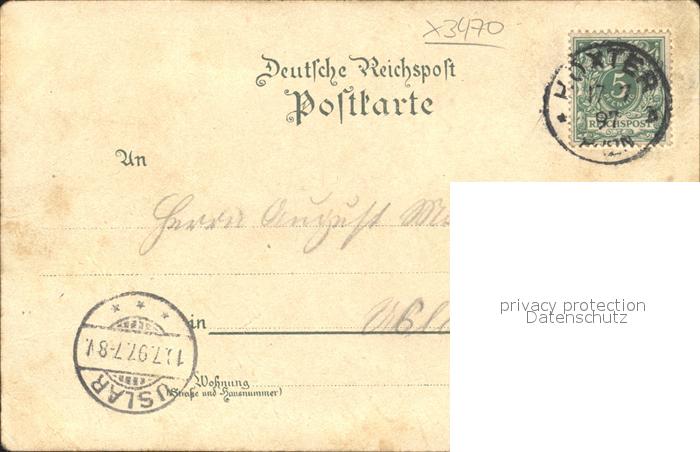 x3470
Deutsche Reichspost
Postkarte
5
REICHSPOST
HÖXTER
97
An
Herrn August
in
USLAR
7.97.7-8V.
Wohnung
(Straße und Hausnummer)
privacy protection
Datenschutz